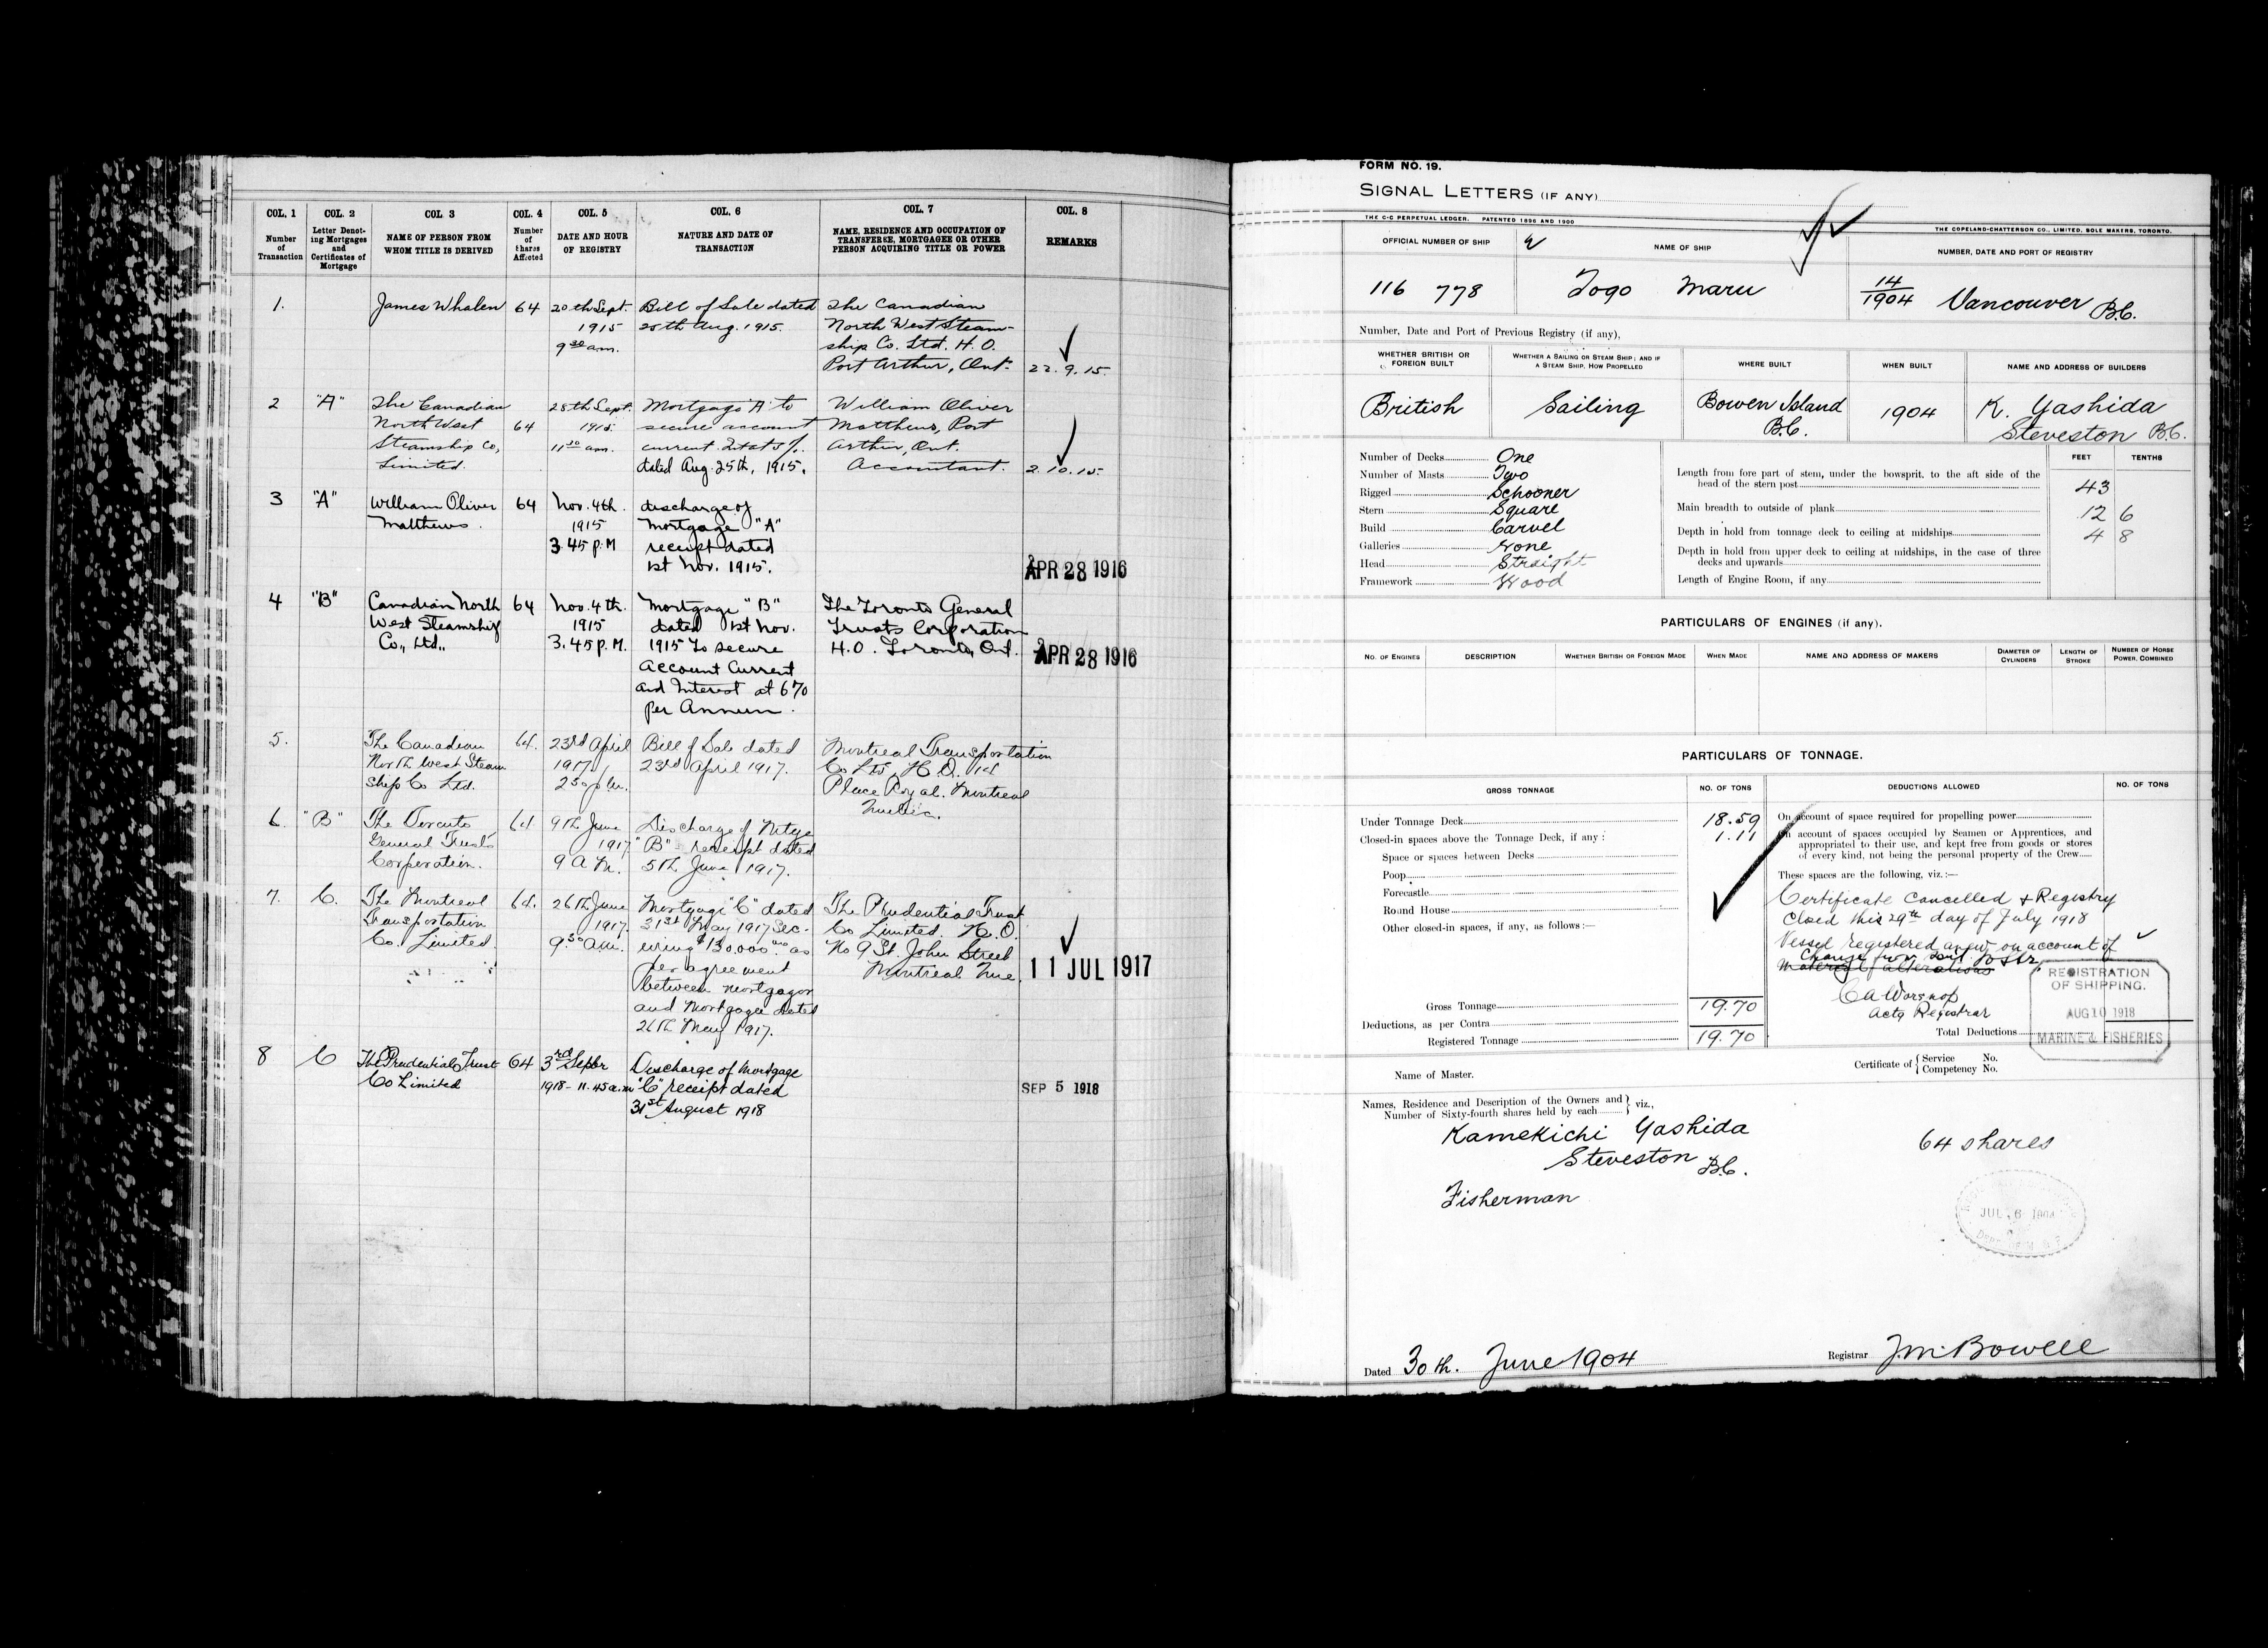 COL. 1 COL. 2 COL. 3 COL. 4 COL. 5 COL. 6 COL. 7 COL. 8
Number of Transaction
Letter Denoting Mortgages and Certificates of Mortgage
NAME OF PERSON FROM WHOM TITLE IS DERIVED
Number of Shares Affected
DATE AND HOUR OF REGISTRY
NATURE AND DATE OF TRANSACTION
NAME, RESIDENCE AND OCCUPATION OF TRANSFEREE, MORTGAGEE OR OTHER PERSON ACQUIRING TITLE OR POWER
REMARKS
1. James Whalen 64 20th Sept. Bill of Sale dated The Canadian
1915 25th Aug. 1915. North West Steam-
9 30 a.m. ship Co. Ltd. H.O.
Port Arthur, Ont. 22.9.15.
2 "A" The Canadian 28th Sept. Mortgage "A" to William Oliver
North West 64 1915 secure account Matthews, Port
Steamship Co, 11 30 am. current Arthur, Ont.
Limited. dated Aug. 25th, 1915. Accountant. 2.10.15.
3 "A" William Oliver 64 Nov. 4th. discharge of
Matthews. 1915 Mortgage "A"
3.45 P.M receipt dated
1st Nov. 1915.
APR 28 1916
4 "B" Canadian North 64 Nov. 4th. Mortgage "B" The Toronto General
West Steamship 1915 dated 1st Nov. Trusts Corporation
Co., Ltd., 3.45 P.M. 1915 To secure H.O. Toronto, Ont. APR 28 1916
Account Current
and Interest at 6%
per Annum.
5. The Canadian 64. 23rd April Bill of Sale dated Montreal Transportation
North West Steam 1917 23rd April 1917. Co Ltd. H.O. 14
ship Co Ltd. 2 30 p.m. Place Royal. Montreal
Quebec.
6. "B" The Toronto 64 9th June Discharge of Mtge
General Trusts 1917 "B" receipt dated
Corporation. 9 A.M. 5th June 1917.
7. C. The Montreal 64. 26th June Mortgage "C" dated The Prudential Trust
Transportation 1917. 31st May 1917 Sec- Co Limited. H.O.
Co. Limited 9.30 a.m. uring $130,000 as No 9 St. John Street
per agreement Montreal Que. 11 JUL 1917
between mortgagor
and Mortgagee dated
26th May 1917.
8 C The Prudential Trust 64 3rd Septbr Discharge of Mortgage
Co Limited 1918 - 11.45 a.m "C" receipt dated SEP 5 1918
31st August 1918
FORM NO. 19.
SIGNAL LETTERS (IF ANY)
THE C-C PERPETUAL LEDGER. PATENTED 1896 AND 1900 THE COPELAND-CHATTERSON CO., LIMITED, SOLE MAKERS, TORONTO.
OFFICIAL NUMBER OF SHIP NAME OF SHIP NUMBER, DATE AND PORT OF REGISTRY
116 778 Togo Maru 14/1904 Vancouver B.C.
Number, Date and Port of Previous Registry (if any),
WHETHER BRITISH OR FOREIGN BUILT
WHETHER A SAILING OR STEAM SHIP; AND IF A STEAM SHIP, HOW PROPELLED
WHERE BUILT
WHEN BUILT
NAME AND ADDRESS OF BUILDERS
British Sailing Bowen Island 1904 K. Yashida
B.C. Steveston B.C.
Number of Decks One
Number of Masts Two
Rigged Schooner
Stern Square
Build Carvel
Galleries None
Head Straight
Framework Wood
FEET TENTHS
Length from fore part of stem, under the bowsprit, to the aft side of the
head of the stern post 43
Main breadth to outside of plank 12 6
Depth in hold from tonnage deck to ceiling at midships 4 8
Depth in hold from upper deck to ceiling at midships, in the case of three
decks and upwards
Length of Engine Room, if any
PARTICULARS OF ENGINES (if any).
NO. OF ENGINES DESCRIPTION WHETHER BRITISH OR FOREIGN MADE WHEN MADE NAME AND ADDRESS OF MAKERS DIAMETER OF CYLINDERS LENGTH OF STROKE NUMBER OF HORSE POWER, COMBINED
PARTICULARS OF TONNAGE.
GROSS TONNAGE NO. OF TONS DEDUCTIONS ALLOWED NO. OF TONS
Under Tonnage Deck 18.59
Closed-in spaces above the Tonnage Deck, if any: 1.11
Space or spaces between Decks
Poop
Forecastle
Round House
Other closed-in spaces, if any, as follows:—
Gross Tonnage 19.70
Deductions, as per Contra
Registered Tonnage 19.70
On account of space required for propelling power
On account of spaces occupied by Seamen or Apprentices, and
appropriated to their use, and kept free from goods or stores
of every kind, not being the personal property of the Crew
These spaces are the following, viz.:—
Certificate Cancelled & Registry
Closed this 29th day of July 1918
Vessel registered anew on account of
Change from sail to Str.
Material alterations
Actg Registrar
REGISTRATION
OF SHIPPING.
AUG 10 1918
MARINE & FISHERIES
Total Deductions
Name of Master.
Certificate of { Service No.
Competency No.
Names, Residence and Description of the Owners and
Number of Sixty-fourth shares held by each } viz.,
Kamekichi Yashida 64 shares
Steveston B.C.
Fisherman
JUL 6 1904
Dated 30th. June 1904
Registrar J.M. Bowell